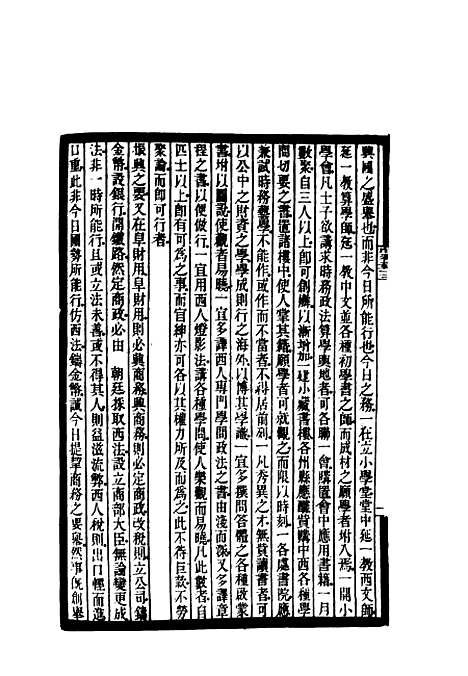 興國之盛舉也而非今日所能行也今日之務一在立小學堂堂中延一教西文師
延一教算學師延一教中文並各種初學書之師而成材之願學者附入焉一開小
學會凡士子欲講求時務政法算學輿地者可各聯一會購置會中應用書籍一月
數聚自三人以上即可創辦以漸增加一建小藏書樓各州縣應釀貲購中西各種學
問切要之書置諸樓中使人掌其籍願學者可就觀之而限以時刻一各處書院應
兼試時務藝學不能作或作而不當者不得居前列一凡秀異之才無貲讀書者可
以公中之財資之學學成則行之海外以博其學識一宜多撰問答體之各種啟蒙
書附以圖說使觀者易曉一宜多譯西人專門學問政法之書由淺而深又多譯章
程之書以便做行一宜用西人燈影法講各種學問使人樂觀而易曉凡此數者自
匹士以上即有可為之事而官紳亦可各以其權力所及而為之此不待巨款不勞
衆論而即可行者
振興之要又在阜財用阜財用則必興商務興商務則必定商政改稅則立公司鑄
金幣設銀行開鐵路然定商政必由 朝廷採取西法設立商部大臣無論變更成
法非一時所能行且或立法未善或不得其人則益滋流弊西人稅則出口輕而進
口重此非今日國勢所能行仿西法鑄金幣誠今日提挈商務之要吳然事旣創舉